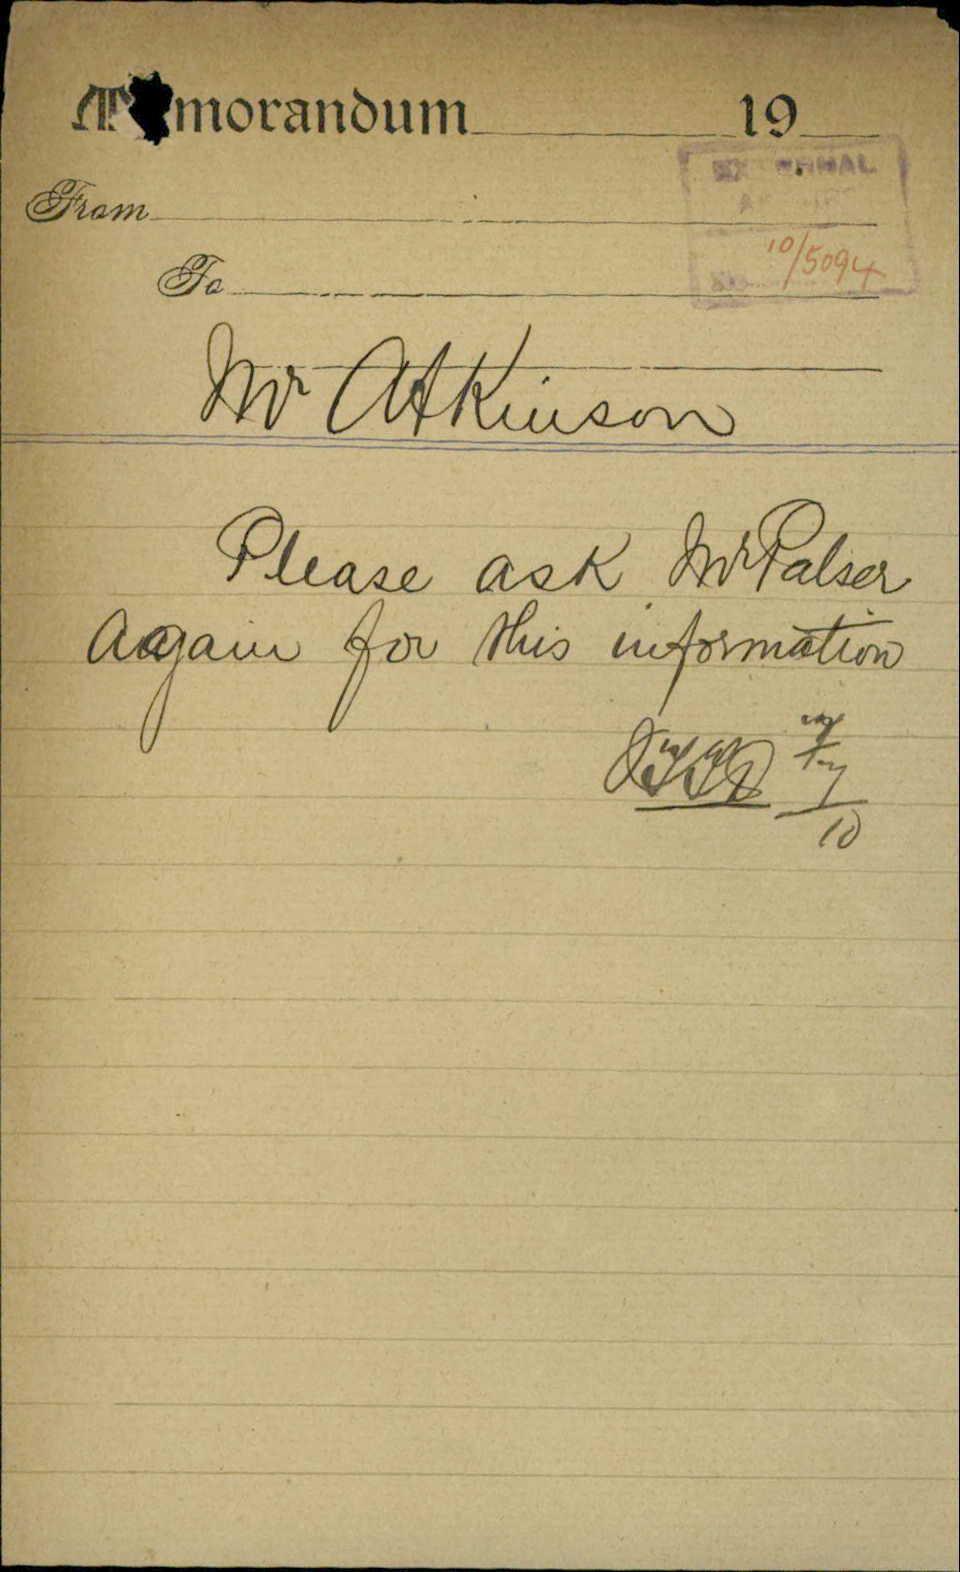 Memorandum 19
From
EXTERNAL
To
10/5094
Mr Atkinson
Please ask Mr Palser
Aagain for this information
10